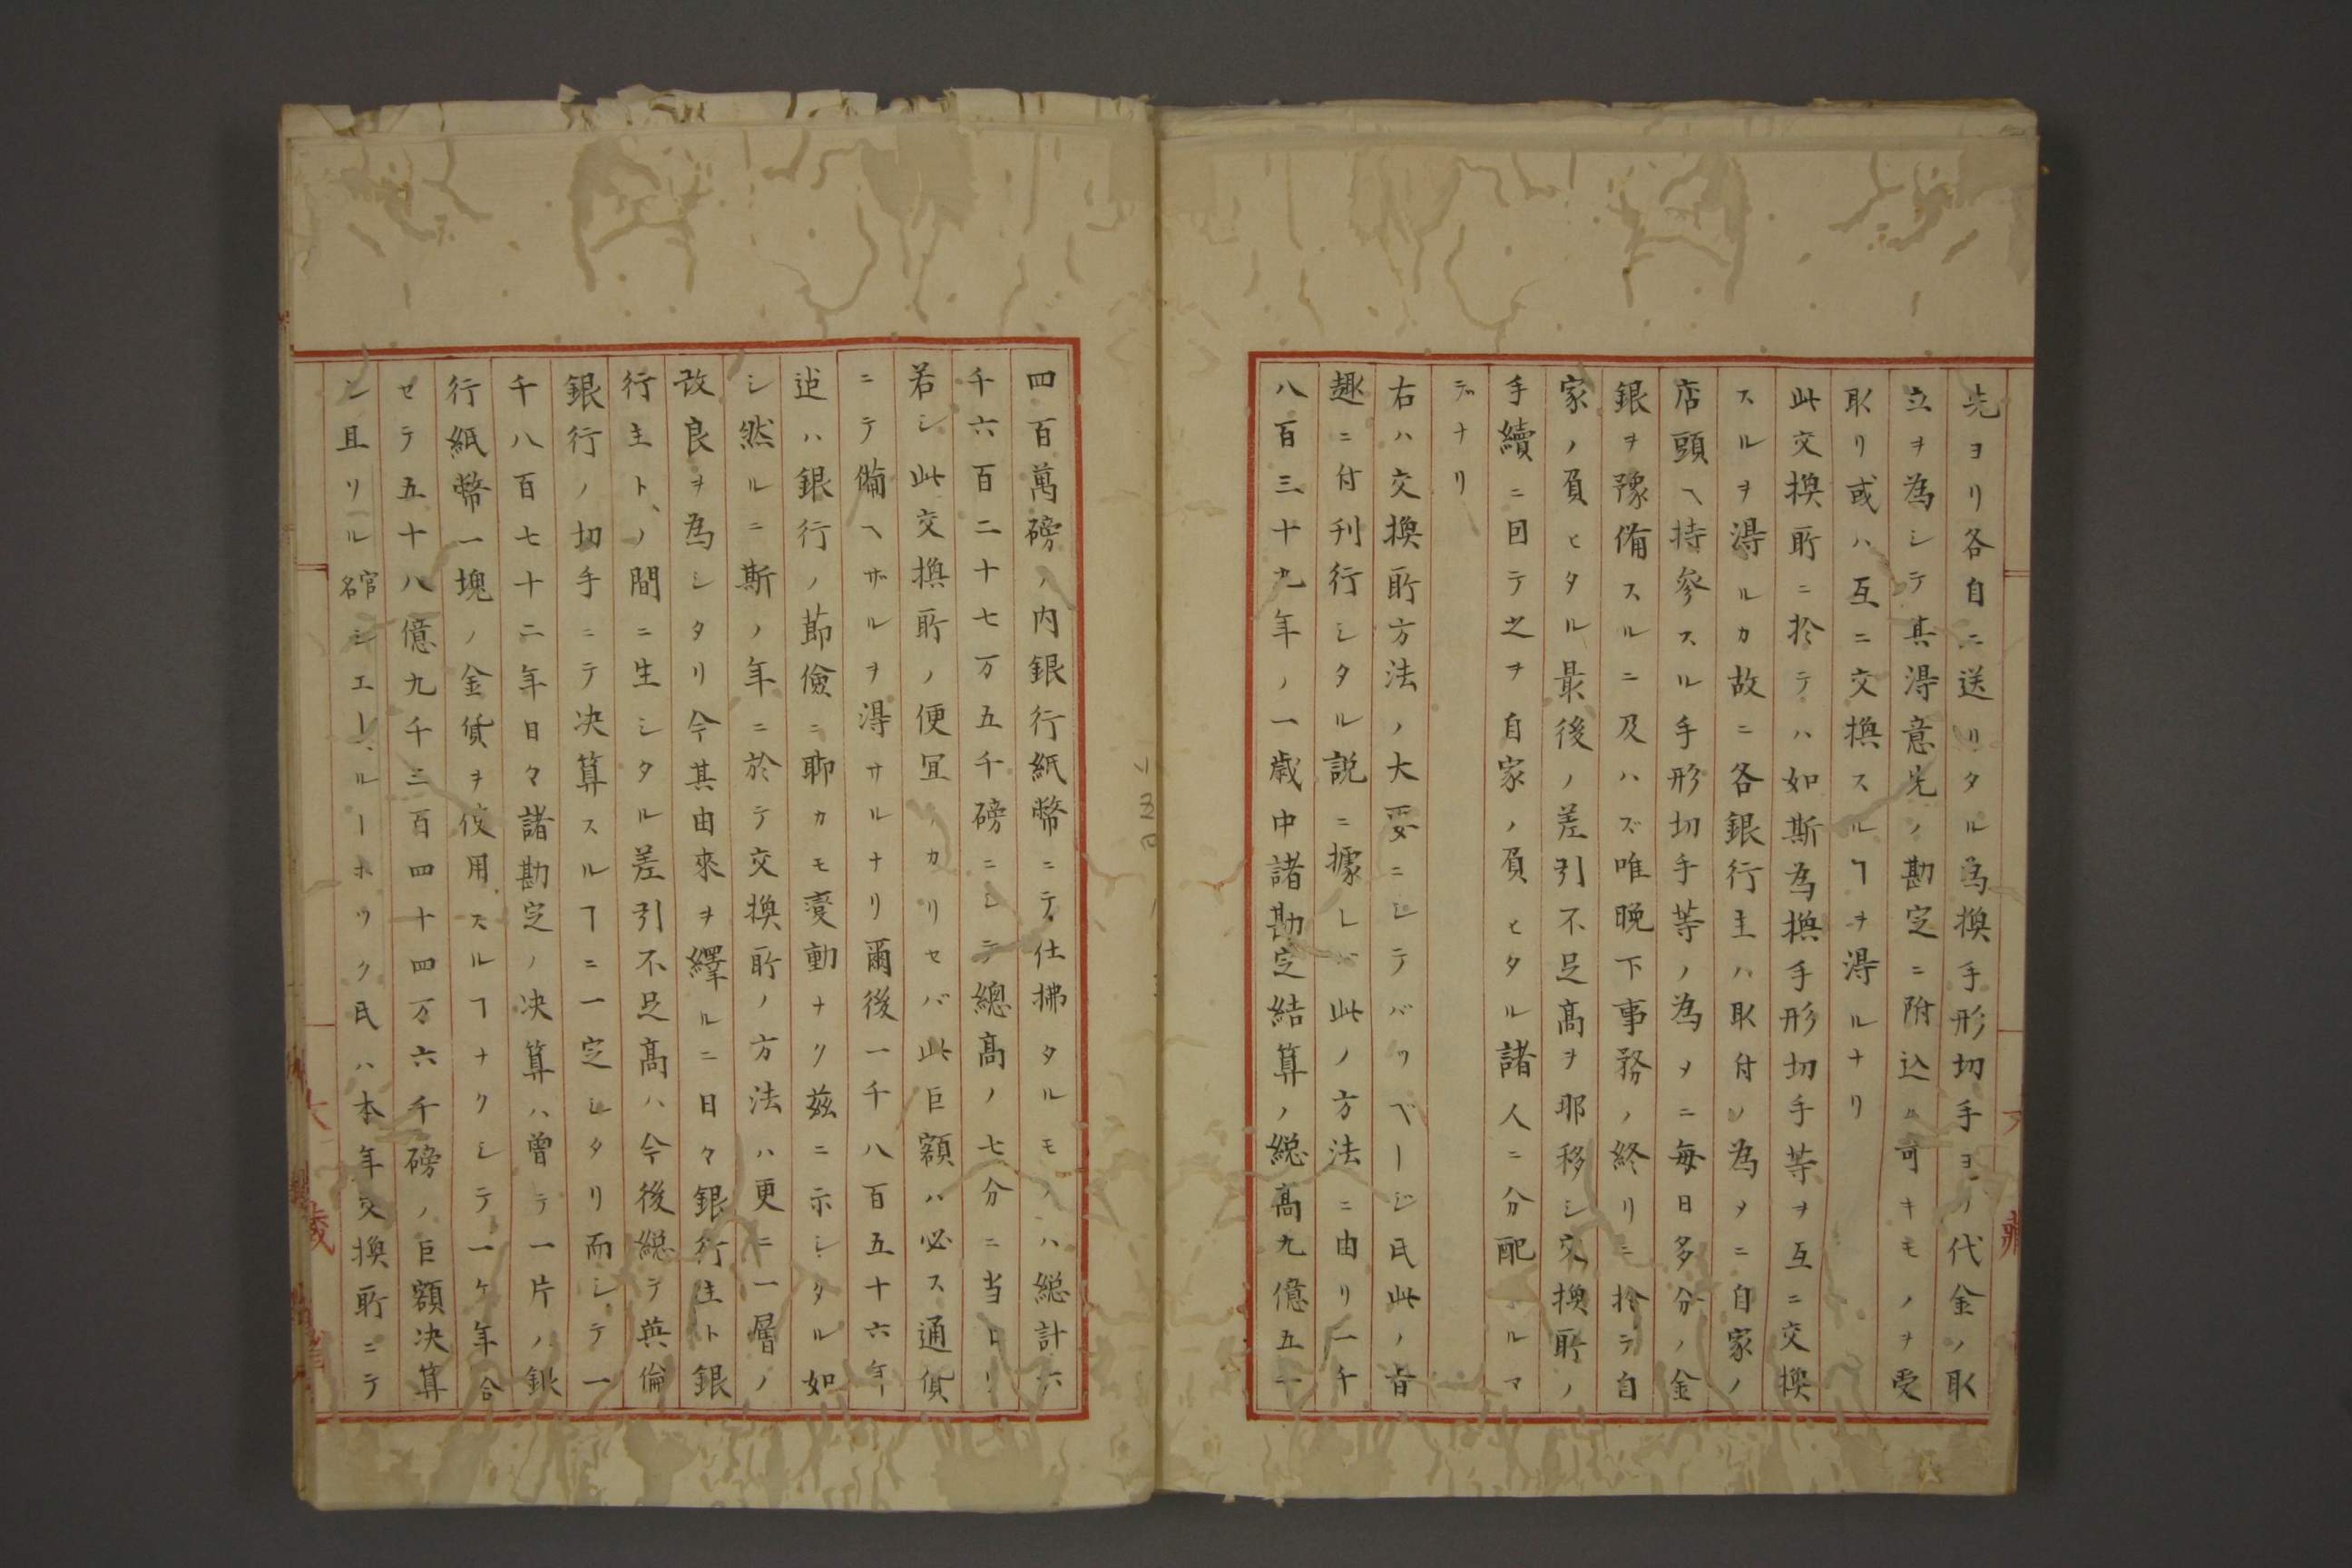 先ヨリ各自ニ送リタル為換手形切手ヨリ代金ノ取
立ヲ為シテ其得意先ノ勘定ニ附込ル可キモノヲ受
取リ或ハ互ニ交換スルヿヲ得ルナリ
此交換所ニ於テハ如斯為換手形切手等ヲ互ニ交換
スルヲ得ルカ故ニ各銀行主ハ取付ノ為メニ自家ノ
店頭ヘ持参スル手形切手等ノ為メニ毎日多分ノ金
銀ヲ豫備スルニ及ハズ唯晩下事務ノ終リニ於テ自
家ノ負ヒタル最後ノ差引不足高ヲ那移シ交換所ノ
手續ニ因テ之ヲ自家ノ負ヒタル諸人ニ分配スルマ
デナリ
右ハ交換所方法ノ大要ニシテバッベージ氏此ノ旨
趣ニ付刊行シタル説ニ據レバ此ノ方法ニ由リ一千
八百三十九年ノ一歳中諸勘定結算ノ総高九億五一
四百萬磅ノ内銀行紙幣ニテ仕拂タルモノハ総計六
千六百二十七万五千磅ニシテ總高ノ七分ニ当レリ
若シ此交換所ノ便宜ノカリセバ此巨額ハ必ス通貨
ニテ備ヘザルヲ得サルナリ爾後一千八百五十六年
迠ハ銀行ノ節儉ニ聊カモ変動ナク茲ニ示シタル如
シ然ルニ斯ノ年ニ於テ交換所ノ方法ハ更ニ一層ノ
改良ヲ為シタリ今其由來ヲ繹ルニ日々銀行主ト銀
行主トノ間ニ生シタル差引不足高ハ今後総テ英倫
銀行ノ切手ニテ决算スルヿニ一定シタリ而シテ一
千八百七十二年日々諸勘定ノ决算ハ曽テ一片ノ銀
行紙幣一塊ノ金貨ヲ使用スルヿナクシテ一ケ年合
セテ五十八億九千三百四十四万六千磅ノ巨額决算
シ且リル官名シエールーホックク氏ハ本年交換所ニテ